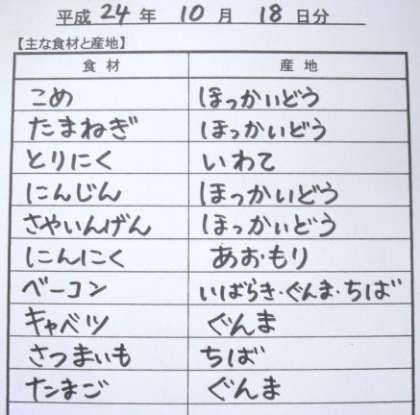 平成 24 年 10 月 18 日分
【主な食材と産地】
食材 産地
こめ ほっかいどう
たまねぎ ほっかいどう
とりにく いわて
にんじん ほっかいどう
さやいんげん ほっかいどう
にんにく あおもり
ベーコン いばらき・ぐんま・ちば
キャベツ ぐんま
さつまいも ちば
たまご ぐんま